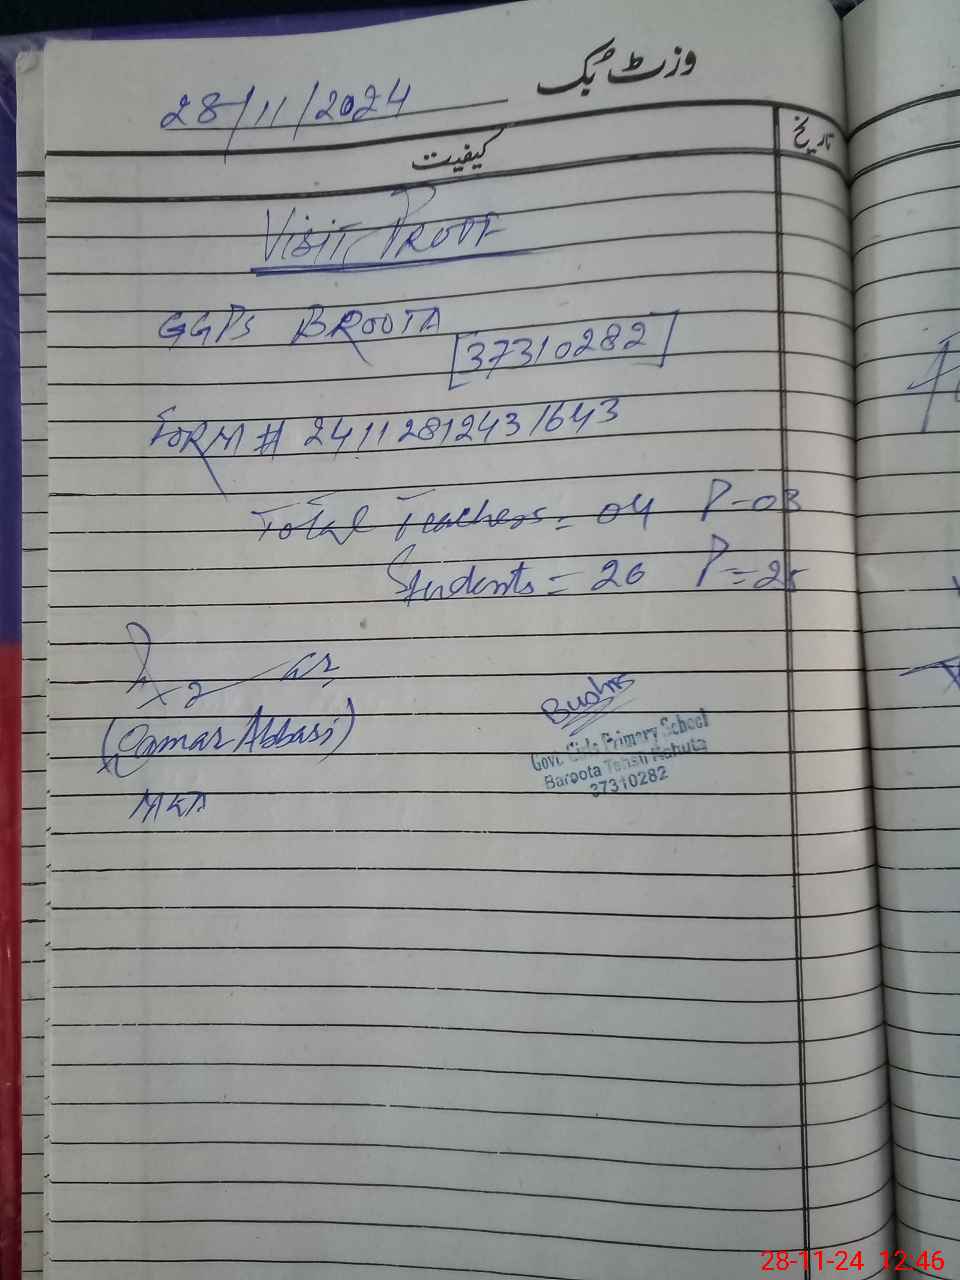 وزٹ بک
28/11/2024
کیفیت
تاریخ
VISIT PROOF
GGPS BROOTA
[37310282]
FORM # 24112812431643
Total Teachers = 04 P-03
Students = 26 P=25
(Qamar Abbasi)
MEA
Bushra
Govt. Girls Primary School
Baroota Tehsil Kahuta
37310282
28-11-24 12:46